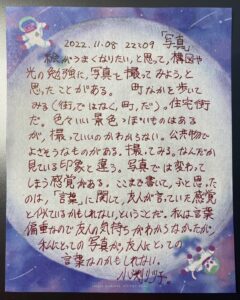 2022.11.08 22:09 「写真」
絵がうまくなりたい、と思って、構図や
光の勉強に、写真を撮ってみよう、と
思ったことがある。 町なかを歩いて
みる(街ではなく、町、だ)。住宅街
だ。色々いい景色っぽいものはある
が、撮っていいのかわからない。公共物で
よさそうなものがある。撮ってみる。なんだか
見ている印象と違う。写真では変わって
しまう感覚がある。ここまで書いて、ふと思った
のは、「言葉」に関して、友人が言っていた感覚
と似ているかもしれない、ということだ。私は言葉
偏重なので友人の気持ちがわからなかったが、
私にとっての写真が、友人にとっての
言葉なのかもしれない。